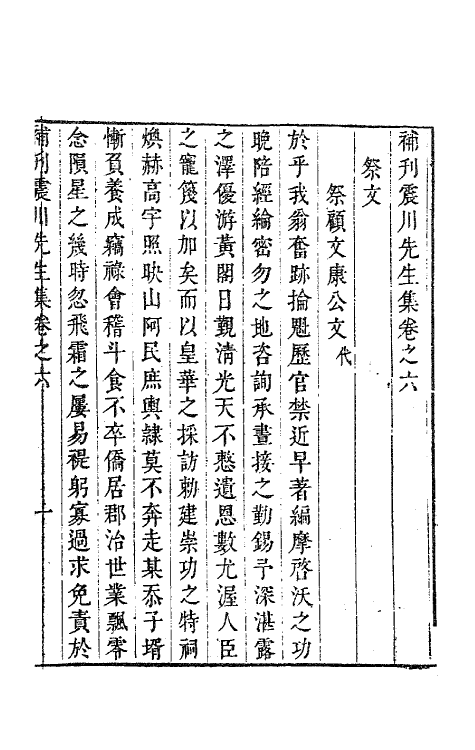 補刋震川先生集卷之六
祭文
祭顧文康公文代
於乎我翁奮跡掄魁歷官禁近早著編摩啓沃之功
晚陪經綸密勿之地咨詢承晝接之勤錫予深湛露
之澤優游黃閣日覲清光天不憗遺恩數尤渥人臣
之寵篾以加矣而以皇華之採訪勑建崇功之特祠
煥赫高宇照映山阿民庶輿隸莫不奔走某忝子壻
慚負養成竊祿會稽斗食不卒僑居郡治世業飄零
念隕星之幾時忽飛霜之屢易褆躬寡過求免責於
補刋震川先生集卷之六 一